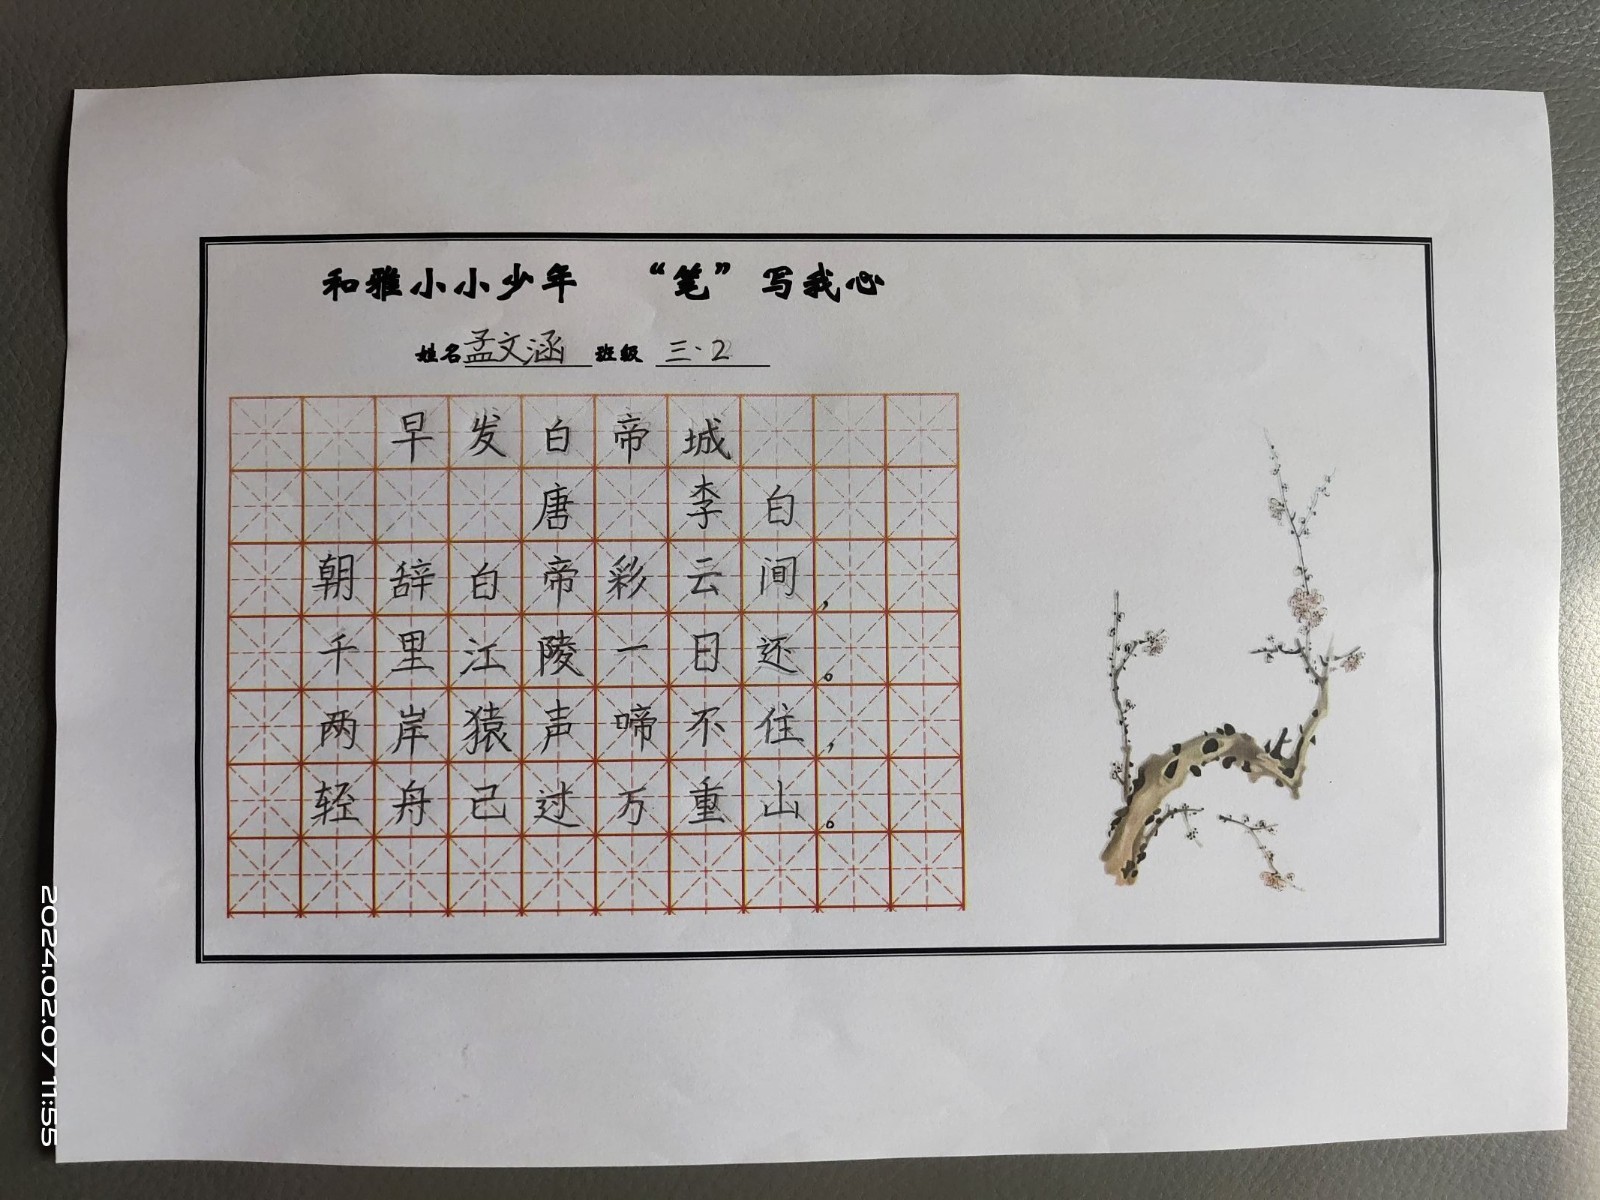 和雅小小少年 “笔”写我心
姓名孟文涵 班级 三·2
早发白帝城
唐 李白
朝辞白帝彩云间，
千里江陵一日还。
两岸猿声啼不住，
轻舟已过万重山。
2024.02.07 11:55